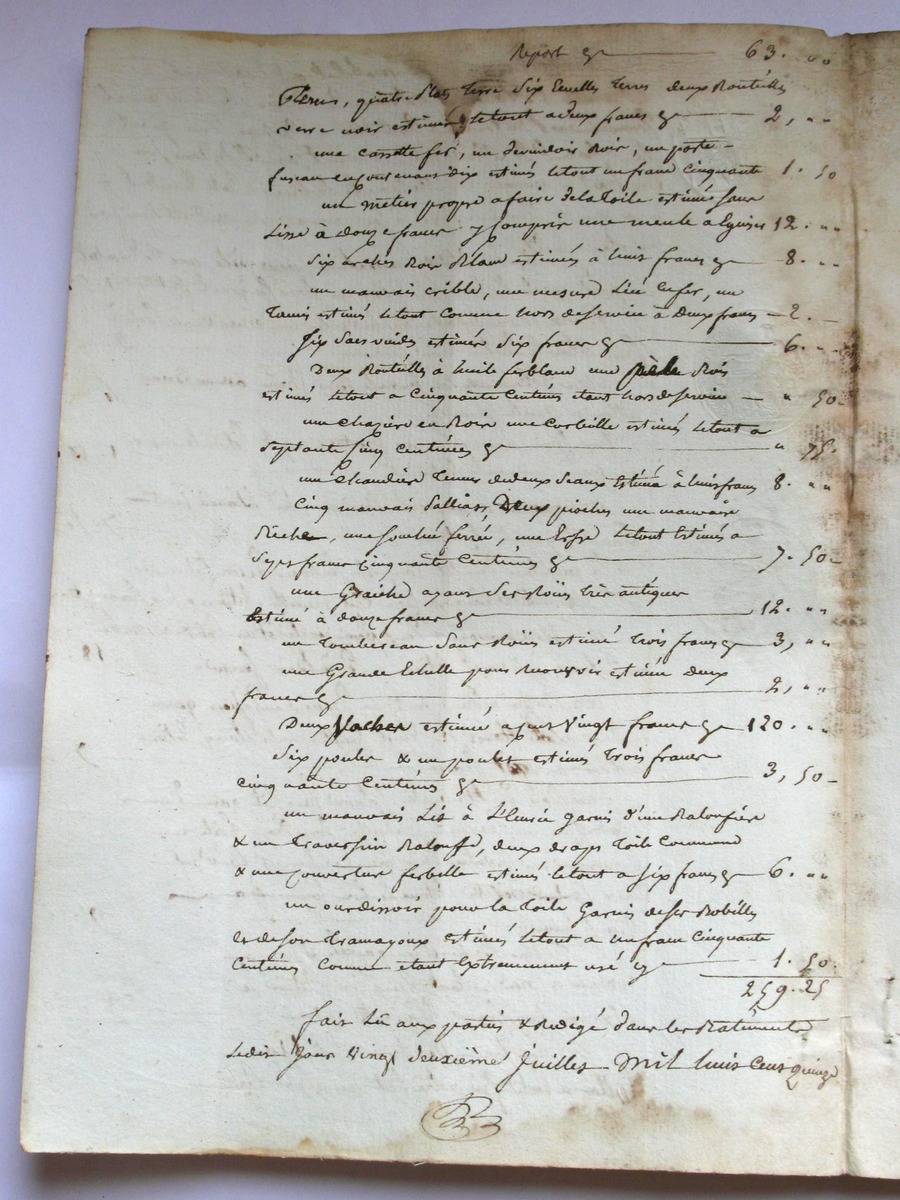 Report cy 63. " "
Verres, quatre plats terre six Ecuelles terres deux Bouteilles
verre noir estimés letout a deux francs cy 2, " "
une cassette fer, un devindoir Bois, un porte -
fuseau en contenant dix estimés letout un franc Cinquante 1. 50
un métier propre a faire dela toile estimé sans
Lisse à douze francs y compris une meule a Eguiser 12. " "
Six arches Bois Blanc estimés à huit francs cy 8. " "
un mauvais crible, une mesure Liée en fer, un
Tamis estimés letout comme hors deservice à Deux francs 2. -
Six Sacs vuides estimés six francs cy 6. " "
Deux Bouteilles à huile ferblanc une pèele Bois
estimés letout a Cinquante Centimes etant hors deservice " 50
une chazière en Boire une Corbeille estimés letout a
Septante Cinq Centimes cy " 75.
une Chaudière Tenant dedeux Seaux Estimée à huit francs 8. " "
Cinq mauvais Deux pioches une mauvaise
Bèche, une fourche ferrée, une letout Estimés a
Sept francs Cinquante Centimes cy 7. 50 -
une ayant Ses Roües très antiques
Estimé à douze francs cy 12. " "
un Tombereau Sans Roües estimé Trois francs cy 3, " "
une Grande Echelle pour estimée deux
francs cy 2, " "
Deux Vaches estimées a cent Vingt francs cy 120. " "
Six poules & un poulet estimés Trois francs
Cinquante Centimes cy 3, 50 -
un mauvais Lit à L'Ecurie garni d'une Balouffière
& un Traversin Balouffe, deux draps toile Commune
& une Couverture estimés letout a six francs cy 6. " "
un ourdissoir pour la toile Garnis deses Bobilles
et de son estimés letout a un franc Cinquante
Centimes Comme etant Extremement usé cy 1. 50.
259. 25
fait Lû aux parties & Redigé dans les Batiments
Ledit Jour Vingt deuxième Juillet Mil huit Cent quinze